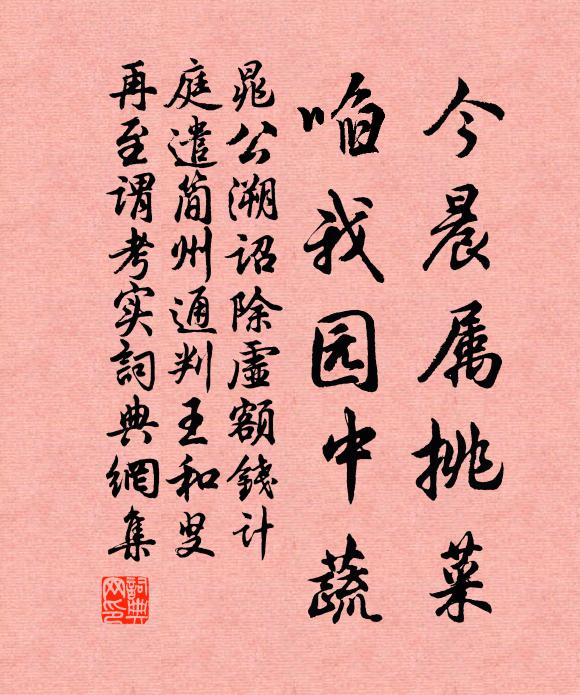 今晨属挑菜
啗我园中蔬
晁公溯詔除虛額錢計
庭遣简州通判王和叟
再至謂考实詞典網集
詞典网印